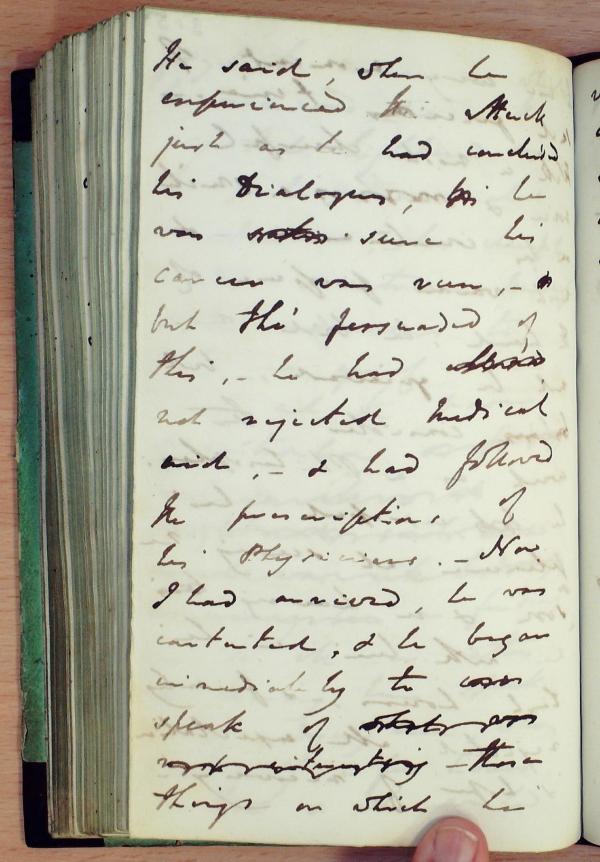 He said, when he
experienced this attack
just as he had concluded
his Dialogues, he
was sure his
career was run, -
but tho' persuaded of
this, - he had
not rejected medical
aid, - & had followed
the prescriptions of
his Physicians. - Now
I had arrived, he was
contented, & he began
immediately to
speak of
- those
things on which his